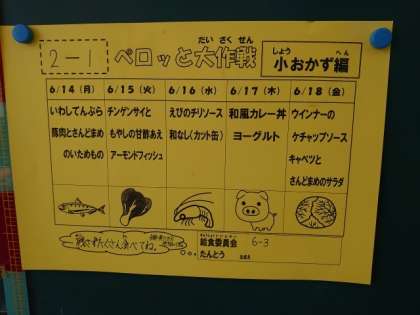 2-1
ペロッと大作戦
だい さく せん
小おかず編
しょう へん
6/14(月) 6/15(火) 6/16(水) 6/17(木) 6/18(金)
いわしてんぷら チンゲンサイと えびのチリソース 和風カレー丼 ウインナーの
豚肉とさんどまめ もやしの甘酢あえ 和なし(カット缶) ヨーグルト ケチャップソース
のいためもの アーモンドフィッシュ キャベツと
さんどまめのサラダ
たくさん食べてね。
給食委員会 6-3
たんとう